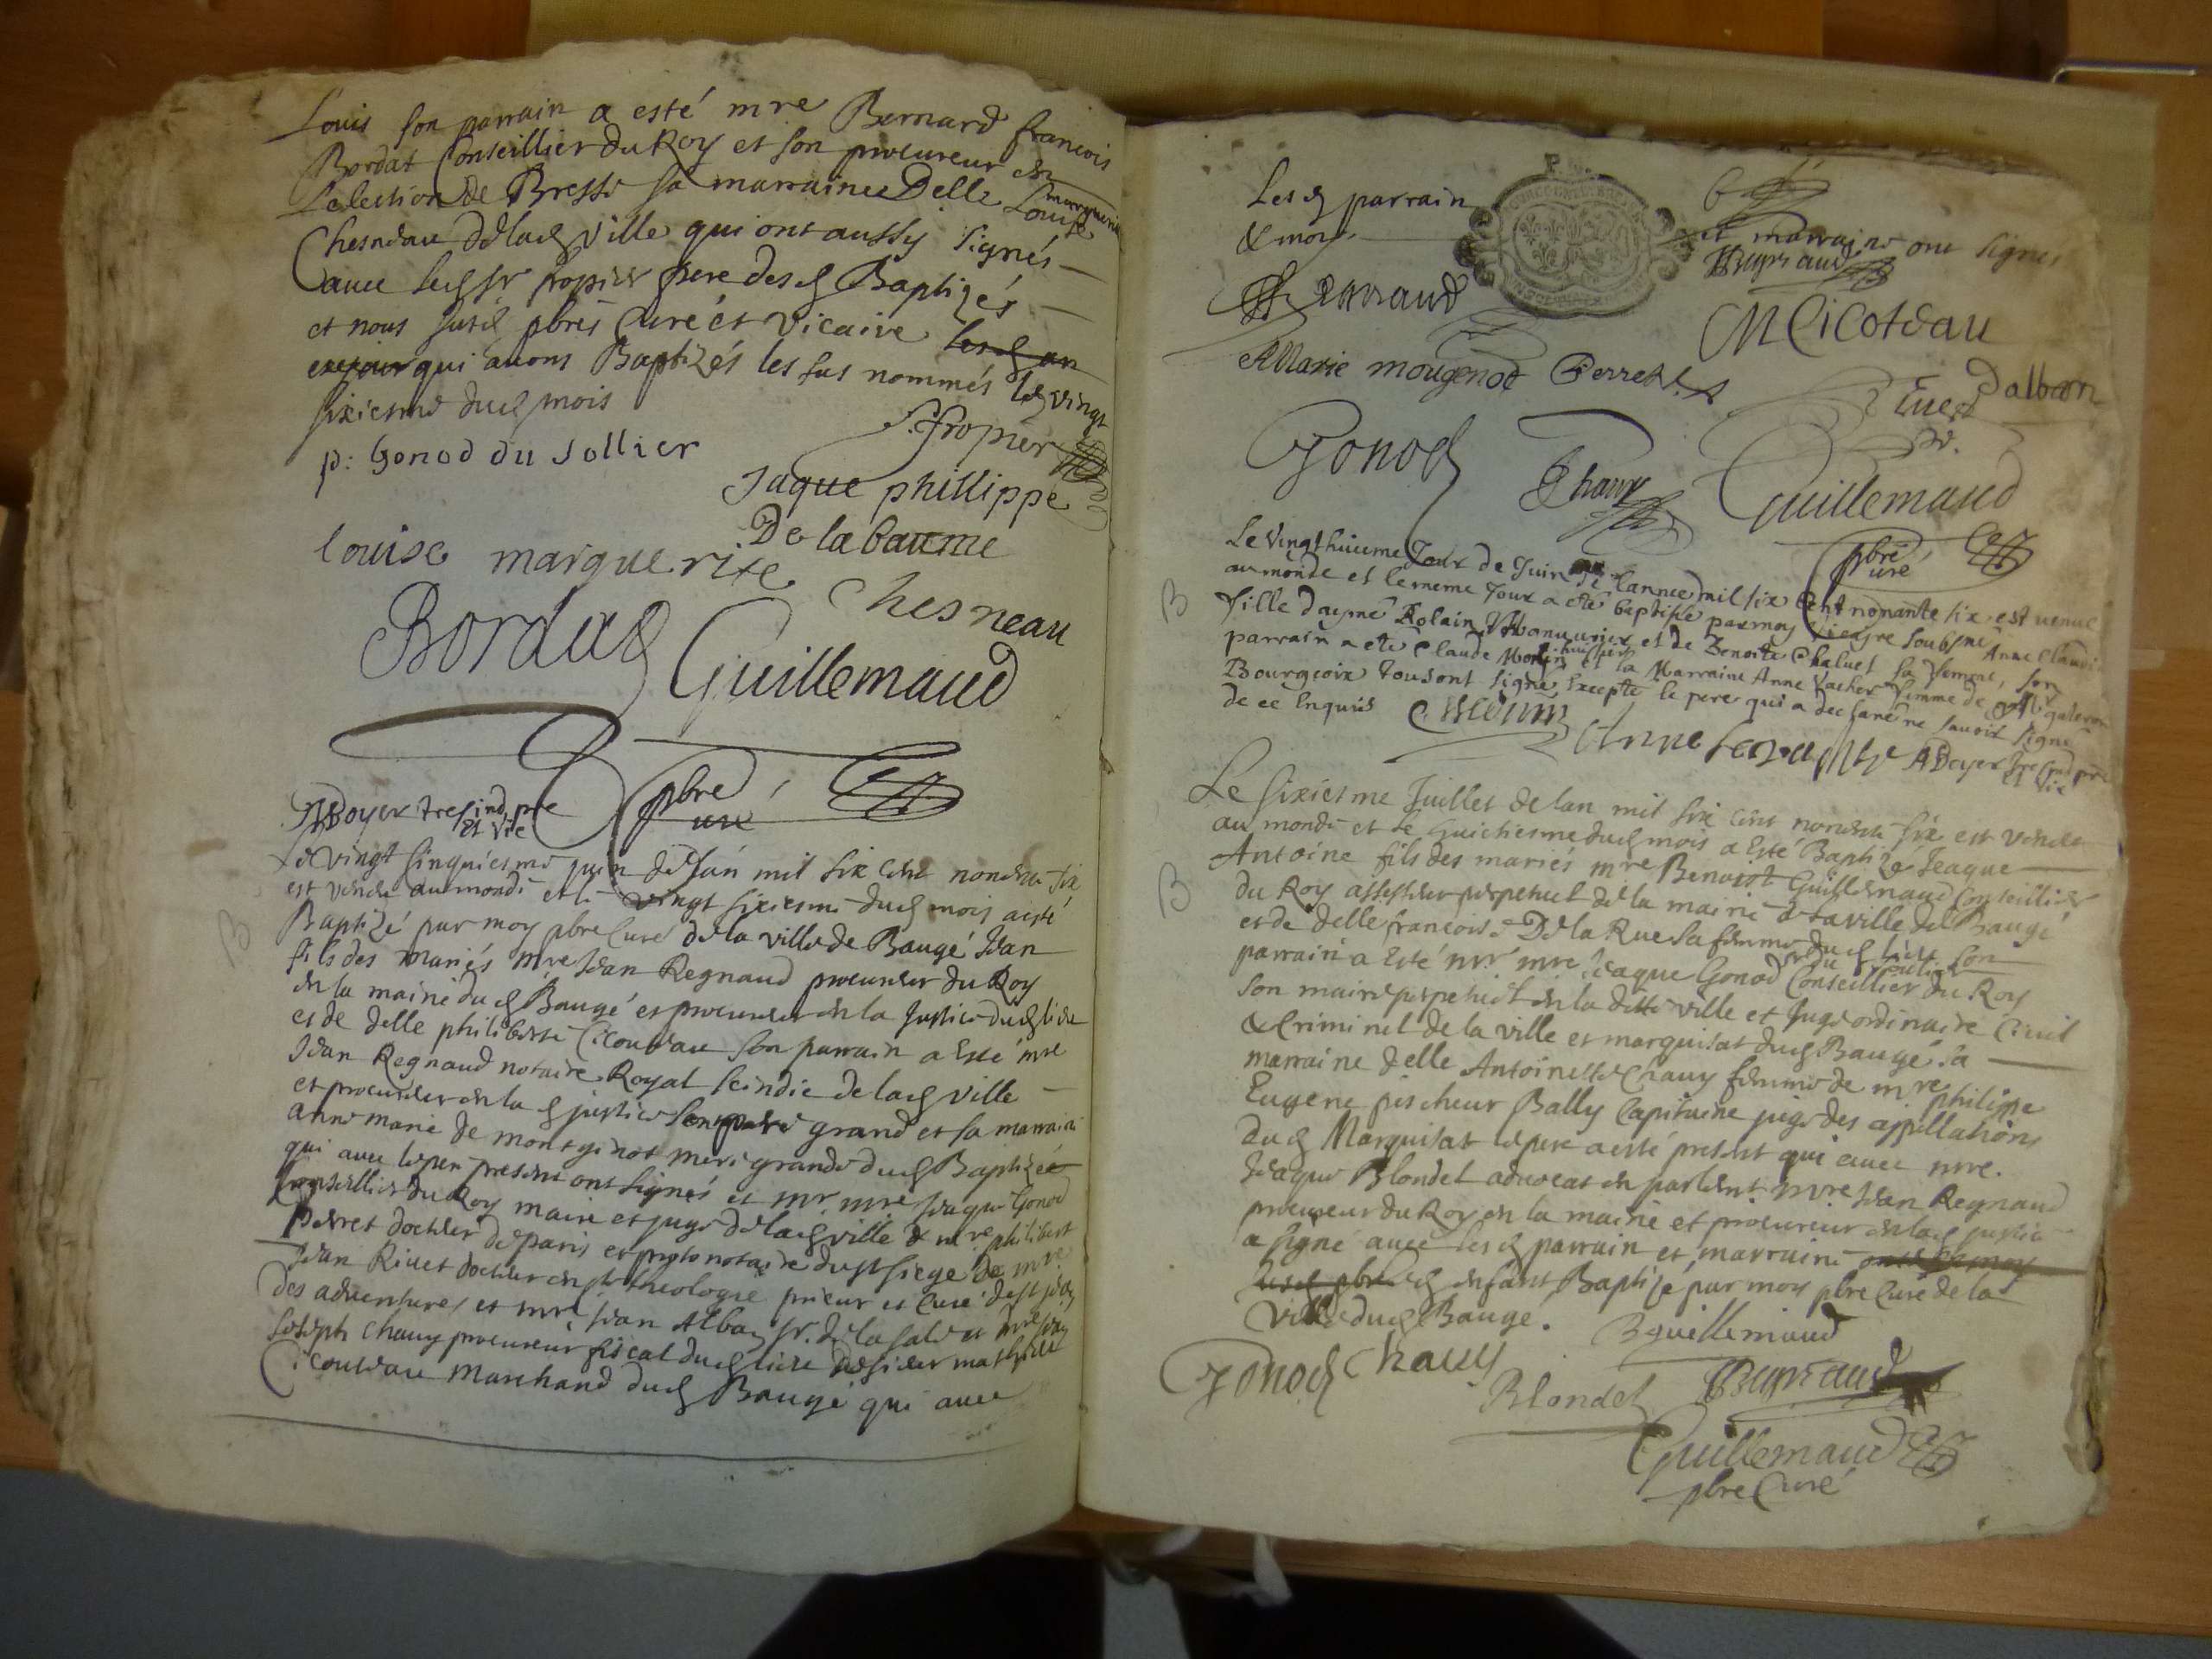 Louis son parrain a esté mre Bernard francois
Bordat Conseillier du Roy et son procureur en
Lelection de Bresse sa marraine Delle Louise marguerite
Chesneau de lad ville qui ont aussy signés
avec led sr fropier pere desd Baptizés
et nous susd pbres Curé et vicaire lesd an
et jour qui avons Baptizés les sus nommés led vingt
sixiesme dud mois
p: Gonod du Sollier
S. fropier
Jaque phillippe
De la baume
louise marguerite
Chesneau
Bordat
Guillemaud
pbre Curé
ADoyer
et vic
Le vingt sinquiesme juin de lan mil six cent nonente six
est venue au monde et le vingt sixiesme dud mois a esté
Baptizé par moy pbre Curé de la ville de Baugé Jean
fils des mariés mre Jean Regnaud procureur du Roy
en la mairie dud Baugé et procureur en la justice dud lieu
et de delle philiberte Cicouteau son parrain a esté mre
Jean Regnaud notaire Royal scindic de lad ville
et procureur en la d justice son pere grand et sa marraine
anne marie de montginot mere grande dud Baptizé
qui avec le pere present ont signés et mr mre Jeaque Gonod
Conseillier du Roy maire et juge de lad ville & mre philibert
Perret docteur de paris et protonotaire du st siege de mre
Jean Rivet docteur en ste theologie prieur et Curé de st Jean
des adventures et mre Jean Alban sr. de la sale et mre
Joseph Chauy procureur fiscal dud lieu
Cicouteau marchand dud Baugé qui avec
Les d parrain et marraine ont signés
& moy
Regnaud
Regnaud
M Cicoteau
Marie mougenot Perret
Rivet
Dalban
Gonod
Chauy
Guillemaud
pbre Curé
Le Vingt huicme Jour de Juin de lannee mil six Cent nonante six est venue
au monde et le meme Jour a eté baptisée par moy Vicayre soubsné Anne Claudi
fille dayme Rolain Manuurier et de Benoite Chaluet sa femme, son
parrain a eté Claude Morin huissier et la Marraine Anne Vacher femme de
Bourgeoix Tous ont signé Excepté le pere qui a declaré ne savoir signé
de ce Enquis
ADoyer
et vic
Le sixiesme Juillet de lan mil six cent nonente six est venue
au monde et le huictiesme dud mois a esté Baptizé Jeaque
Antoine fils des mariés mre Benoist Guillemaud Conseillier
du Roy assesseur perpetuel de la mairie de la ville de Baugé
et de delle francoise De la Rue sa femme dud lieu son
parrain a esté mr mre Jeaque Gonod du Sollier Conseillier du Roy
son maire perpetuel en la ditte ville et juge ordinaire Civil
& Criminel de la ville et marquisat dud Baugé sa
marraine delle Antoinette Chauy femme de mre philippe
Eugene pischeur Bally Capitaine juge des appellations
dud Marquisat le pere a esté present qui avec mre.
Jeaque Blondel advocat en parlent mre Jean Regnaud
procureur du Roy en la mairie et procureur en lad justice
a signé avec lesd parrain et marraine
led enfant Baptizé par moy pbre Curé de la
Ville dud Baugé.
BGuillemaud
Gonod Chauy
Blondel
Regnaud
Guillemaud
pbre Curé